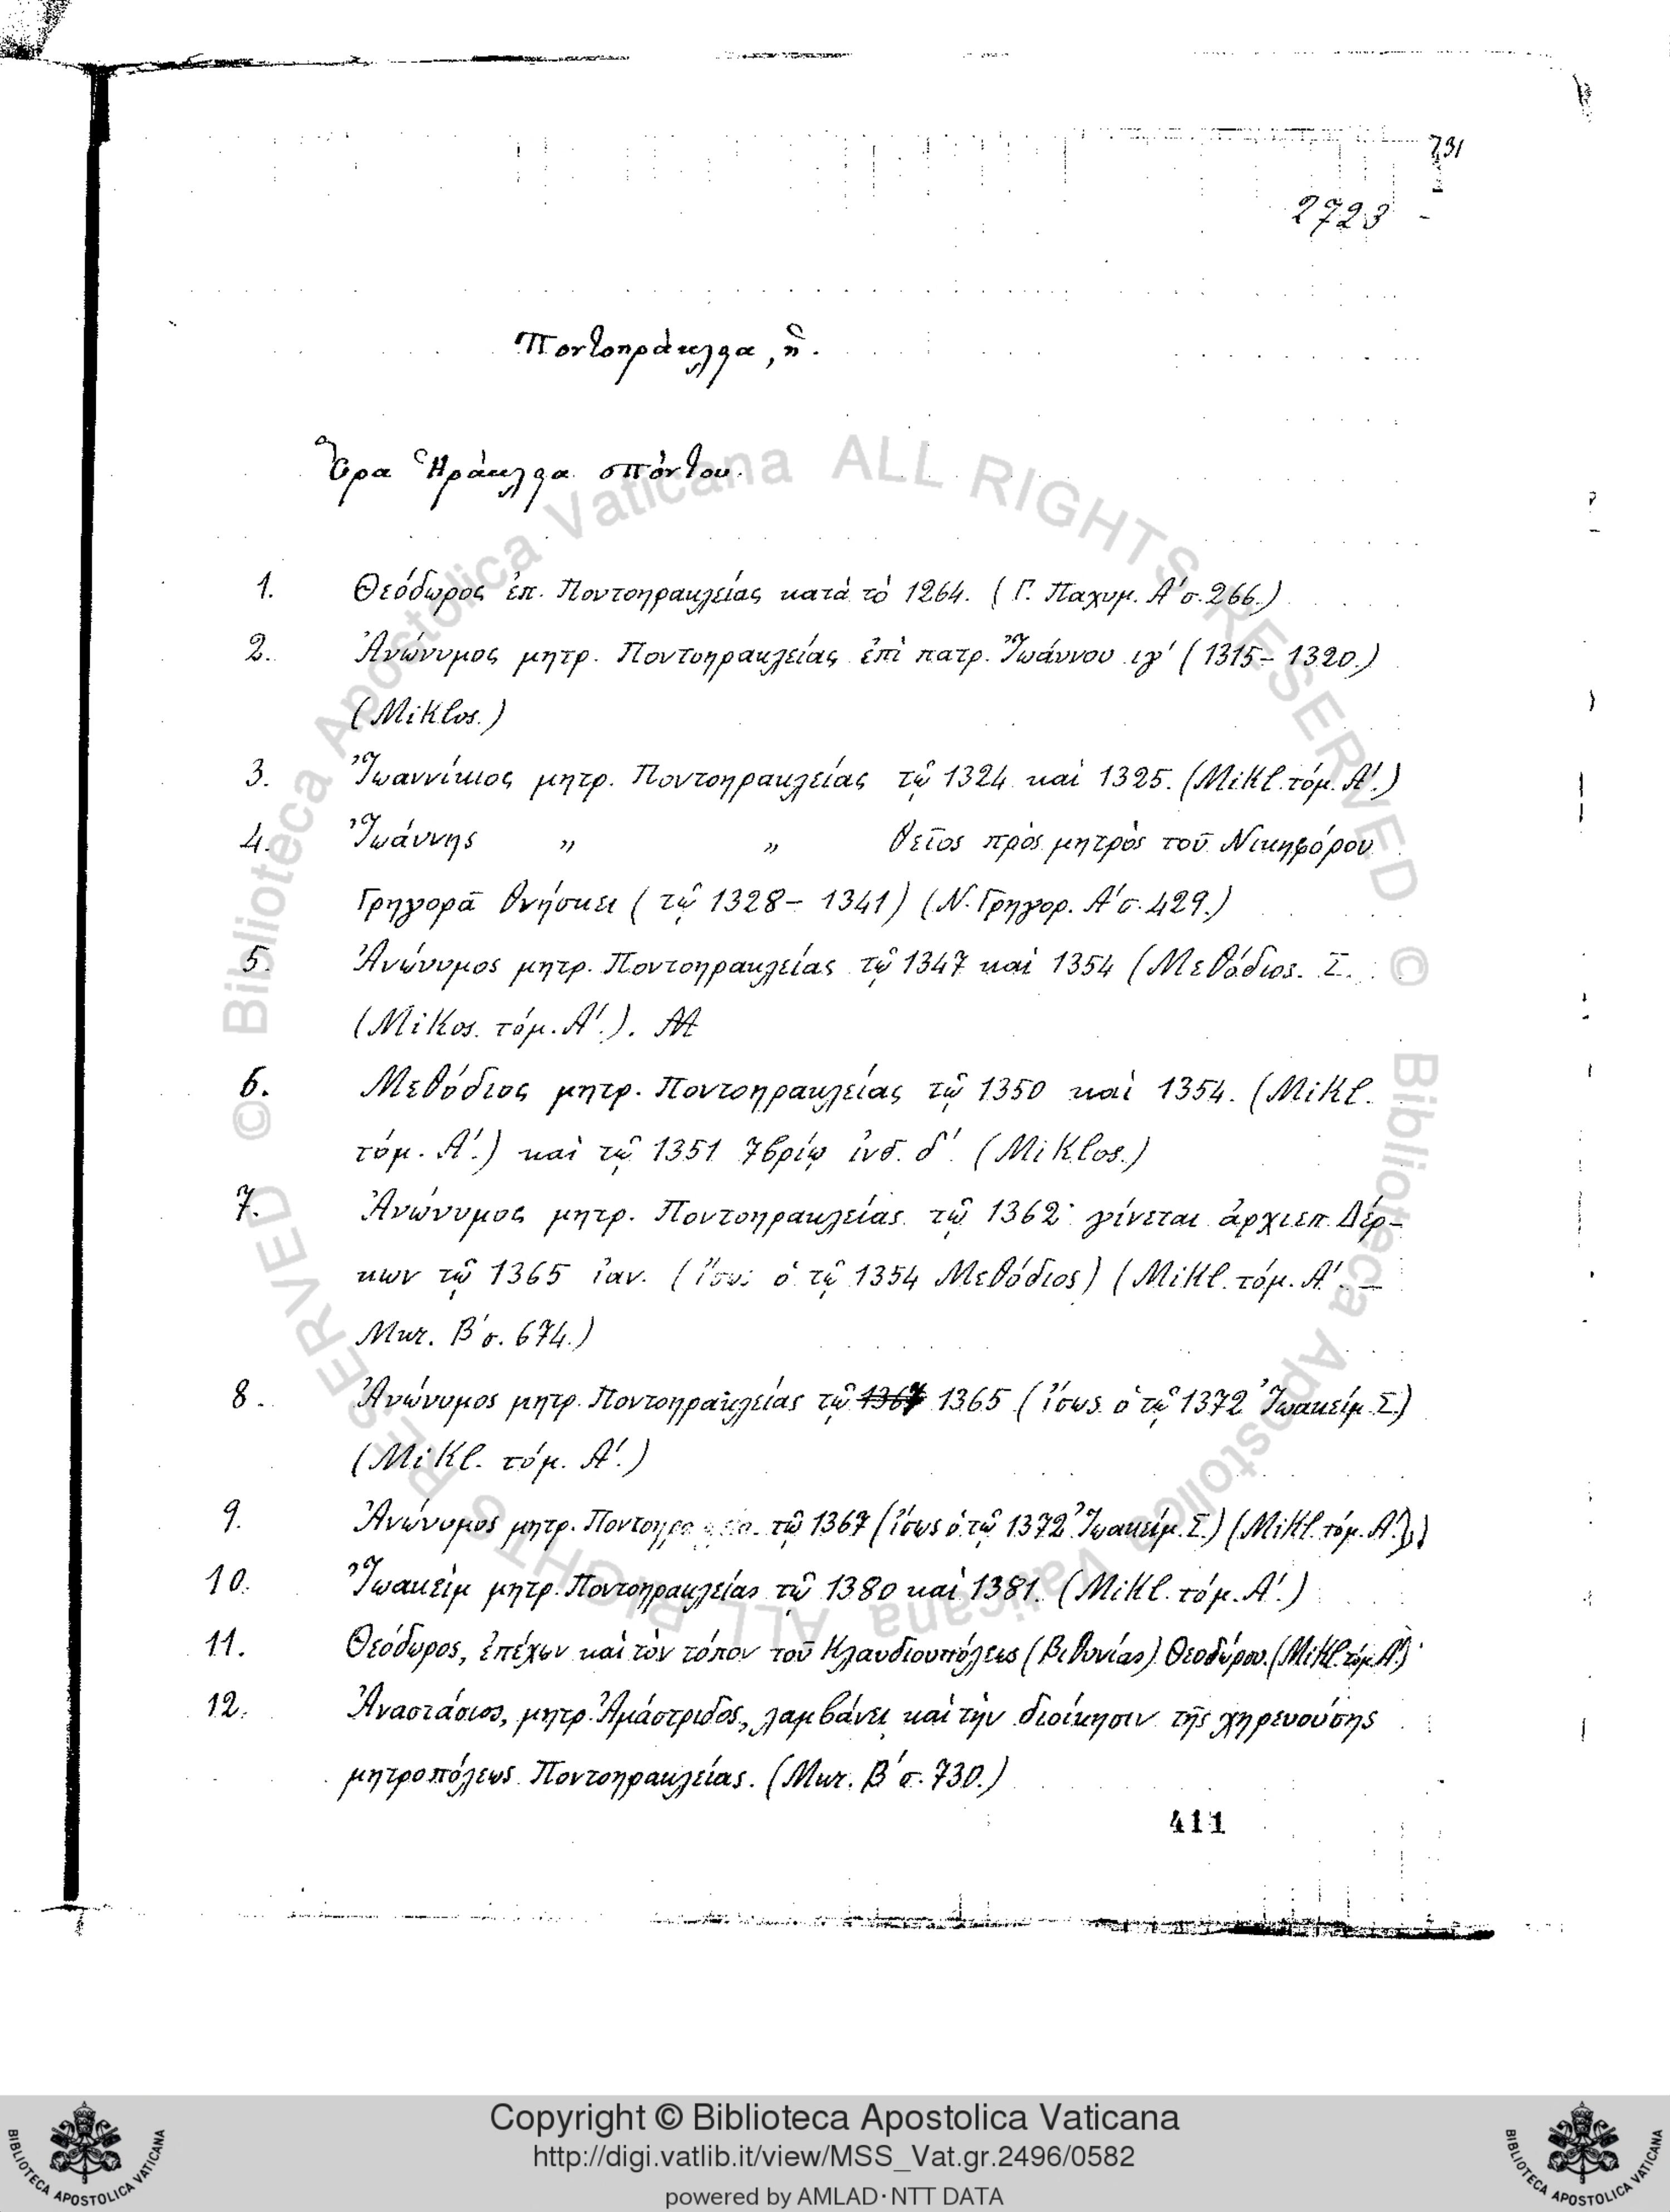 731
2723
Ποντοηράκλεα, ἡ.
Ὅρα Ἡράκλεα πόντου.
1. Θεόδωρος ἐπ. Ποντοηρακλείας κατὰ τὸ 1264. (Γ. Παχυμ. Α΄ σ. 266.)
2. Ἀνώνυμος μητρ. Ποντοηρακλείας ἐπὶ πατρ. Ἰωάννου ιγ΄ (1315 – 1320.)
(Miklos.)
3. Ἰωαννίκιος μητρ. Ποντοηρακλείας τῷ 1324 καὶ 1325. (Mikl. τόμ. Α΄.)
4. Ἰωάννης „ „ θεῖος πρὸς μητρὸς τοῦ Νικηφόρου
Γρηγορᾶ θνήσκει (τῷ 1328 – 1341) (Ν. Γρηγορ. Α΄ σ. 429.)
5. Ἀνώνυμος μητρ. Ποντοηρακλείας τῷ 1347 καὶ 1354 (Μεθόδιος. Σ.
(Mikos. τόμ. Α΄.).
6. Μεθόδιος μητρ. Ποντοηρακλείας τῷ 1350 καὶ 1354. (Mikl.
τόμ. Α΄.) καὶ τῷ 1351 7βρίῳ ἰνδ. δ΄. (Miklos.)
7. Ἀνώνυμος μητρ. Ποντοηρακλείας τῷ 1362· γίνεται ἀρχιεπ. Δέρ-
κων τῷ 1365 ἰαν. (ἴσως ὁ τῷ 1354 Μεθόδιος) (Mikl. τόμ. Α΄. —
Μικ. Β΄ σ. 674.)
8. Ἀνώνυμος μητρ. Ποντοηρακλείας τῷ 1367 1365 (ἴσως ὁ τῷ 1372 Ἰωακείμ Σ.)
(Mikl. τόμ. Α΄.)
9. Ἀνώνυμος μητρ. τῷ 1367 (ἴσως ὁ τῷ 1372 Ἰωακείμ. Σ.) (Mikl. τόμ. Α΄.)
10. Ἰωακεὶμ μητρ. Ποντοηρακλείας τῷ 1380 καὶ 1381. (Mikl. τόμ. Α΄.)
11. Θεόδωρος, ἐπέχων καὶ τὸν τόπον τοῦ Κλαυδιουπόλεως (Βιθυνίας) Θεοδώρου. (Mikl. τόμ. Α΄.)
12. Ἀναστάσιος, μητρ. Ἀμάστριδος, λαμβάνει καὶ τὴν διοίκησιν τῆς χηρευούσης
μητροπόλεως Ποντοηρακλείας. (Μικ. Β΄ σ. 730.)
411
© Biblioteca Apostolica Vaticana ALL RIGHTS RESERVED © Biblioteca Apostolica Vaticana ALL RIGHTS RESERVED
Copyright © Biblioteca Apostolica Vaticana
http://digi.vatlib.it/view/MSS_Vat.gr.2496/0582
powered by AMLAD·NTT DATA
BIBLIOTECA APOSTOLICA VATICANA
BIBLIOTECA APOSTOLICA VATICANA